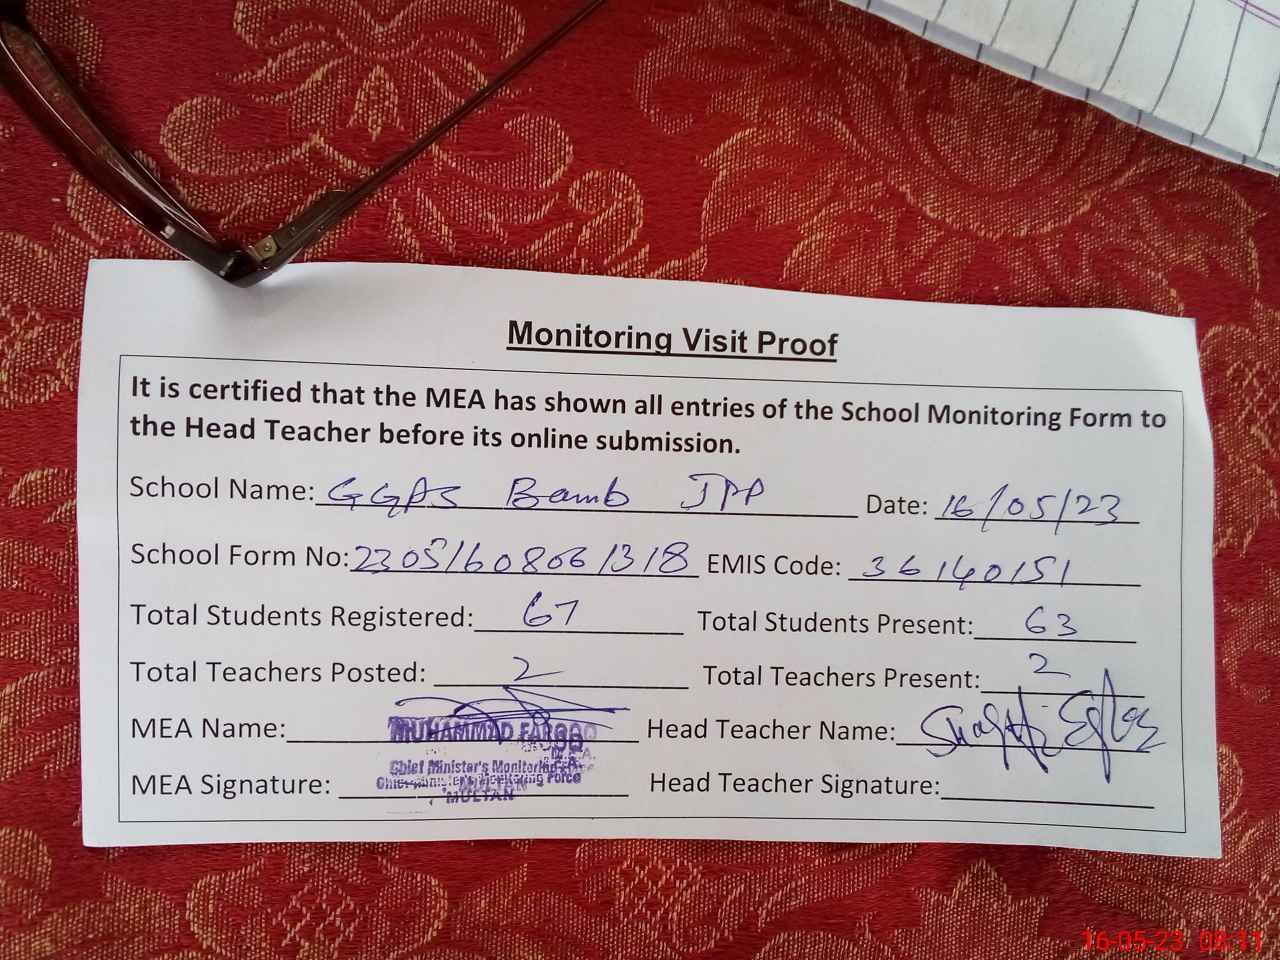 Monitoring Visit Proof
It is certified that the MEA has shown all entries of the School Monitoring Form to
the Head Teacher before its online submission.
School Name: GGPS Bamb JPP Date: 16/05/23
School Form No: 230516080661318 EMIS Code: 36140151
Total Students Registered: 67 Total Students Present: 63
Total Teachers Posted: 2 Total Teachers Present: 2
MEA Name: MUHAMMAD FAROOQ Head Teacher Name:
Chief Minister's Monitoring Force
MEA Signature: Head Teacher Signature:
MULTAN
16-05-23 08:11